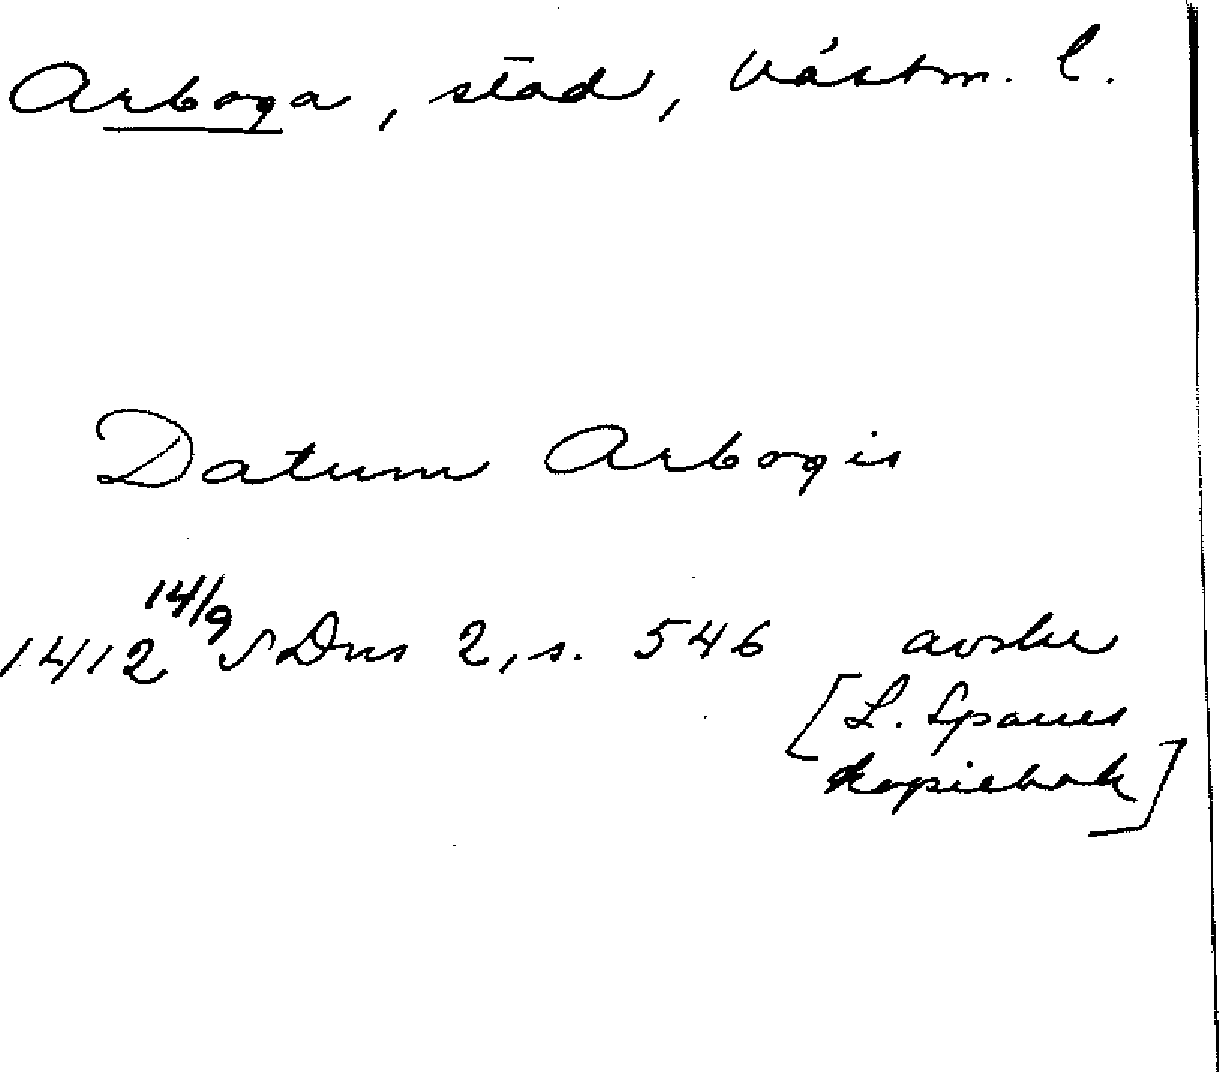 Arboga, stad, Västm. l.
Datum Arbogis
1412 14/9 SDns 2, s. 546 avskr
[L. Spanes
kopiebok]